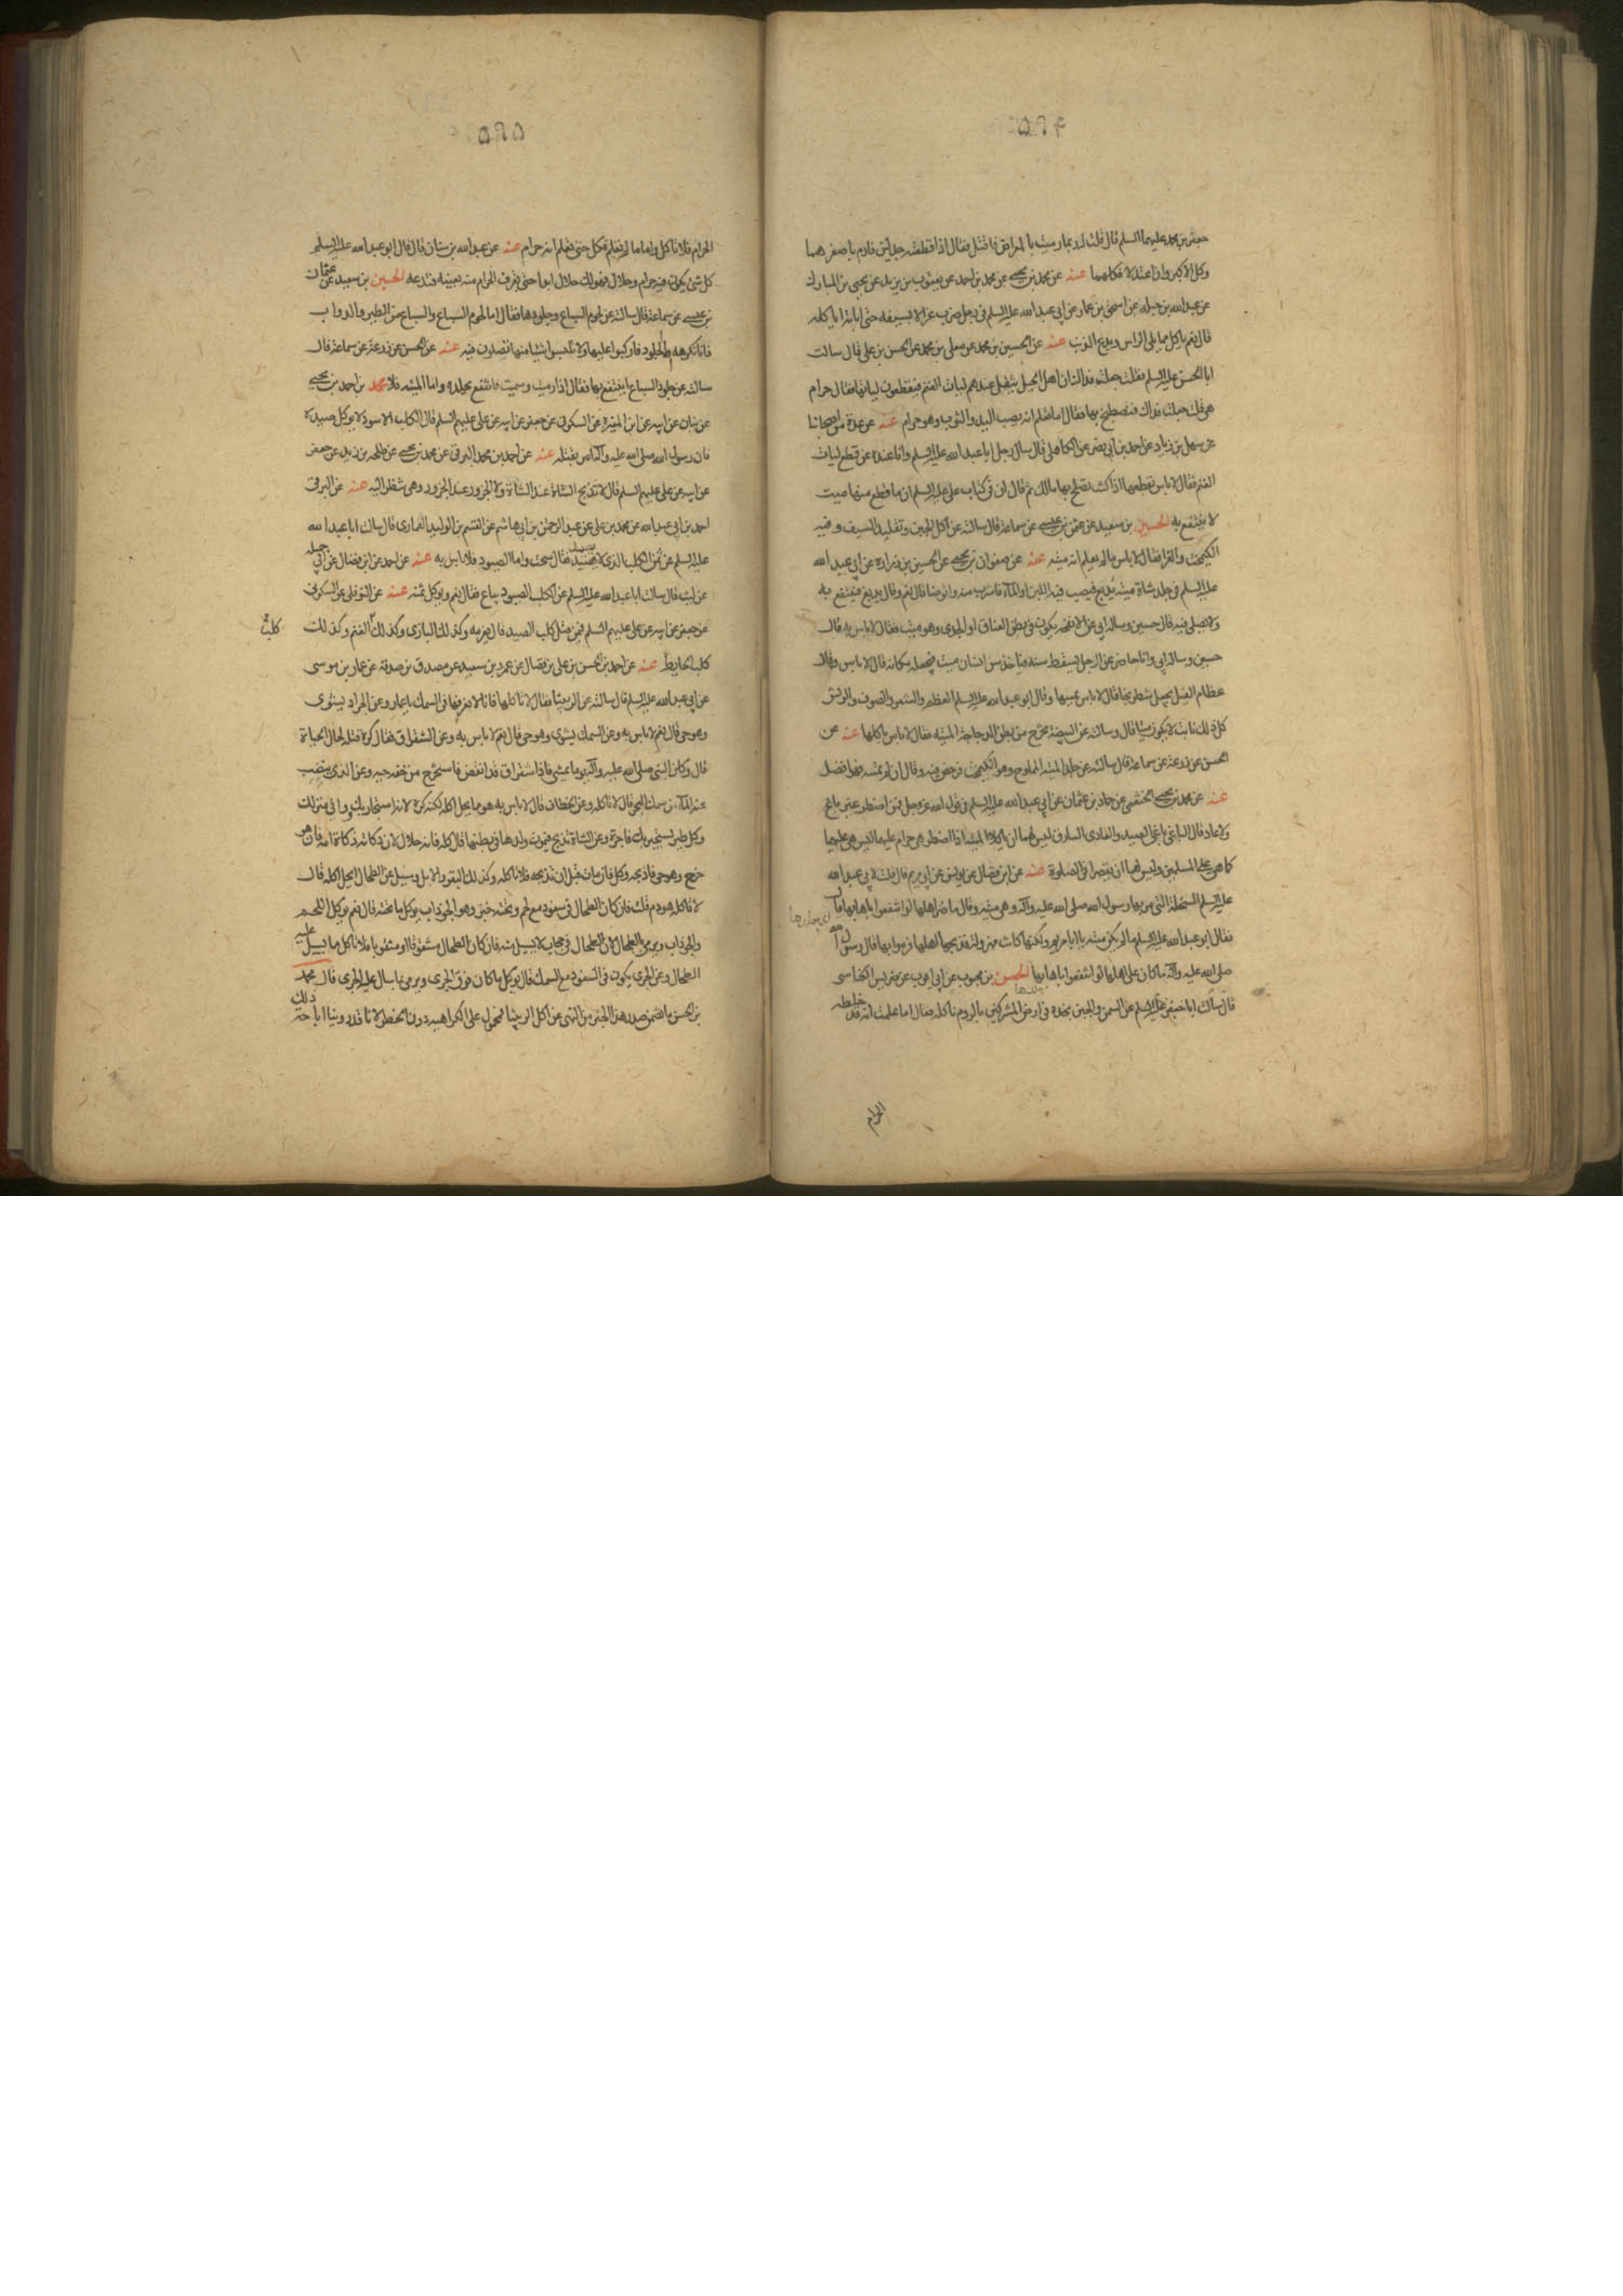 ٥٩٤
جعفر بن محمد عليهما السلم قال قلت له ربما رميت بالمعراض فاقتل فقال اذا قطعه جدلين فارم باصغرهما
وكل الاكبر وان اعتدلا فكلهما عنه عن محمد بن يحيى عن محمد بن احمد عن يعقوب بن يزيد عن يحيى بن المبارك
عن عبد الله بن جبلة عن اسحق بن عمار عن ابي عبد الله عليه السلم في رجل ضرب غزالا بسيفه حتى ابانه اياكله
قال نعم ياكل مما يلي الراس ويدع الذنب عنه عن الحسين بن محمد عن معلى بن محمد عن الحسن بن علي قال سالت
ابا الحسن عليه السلم فقلت جعلت فداك ان اهل الجبل يثقل عندهم اليات الغنم فيقطعون الياتها فقال حرام
هي قلت جعلت فداك فنصطبح بها فقال اما تعلم انه يصيب اليد والثوب وهو حرام عنه عن عدة من اصحابنا
عن سهل بن زياد عن احمد بن ابي نصر عن الكاهلي قال سال رجل ابا عبد الله عليه السلم وانا عنده عن قطع اليات
الغنم فقال لا باس بقطعها اذا كنت تصلح بها مالك ثم قال ان في كتاب علي عليه السلم ان ما قطع منها ميت
لا ينتفع به الحسين بن سعيد عن عثمن بن عيسى عن سماعة قال سالته عن اكل الجبن وتقليد السيف وفيه
الكيمخت والغرا فقال لا باس ما لم يعلم انه ميته عنه عن صفوان بن يحيى عن الحسين بن زرارة عن ابي عبد الله
عليه السلم في جلد شاة ميتة يدبغ فيصب فيه اللبن والماء فاشرب منه واتوضا قال نعم وقال يدبغ فينتفع به
ولا يصلى فيه قال حسين وساله ابي عن الانفحه يكون في بطن العناق او الجدى وهو ميت فقال لا باس به قال
حسين وساله ابي وانا حاضر عن الرجل يسقط سنه فياخذ سن انسان ميت فيجعله مكانه قال لا باس وقال
عظام الفيل يجعل شطرنجا قال لا باس بمسها وقال ابو عبد الله عليه السلم العظم والشعر والصوف والريش
كل ذلك نابت لا يكون ميتا قال وسالته عن البيضة تخرج من بطن الدجاجة الميته فقال لا باس باكلها عنه عن
الحسن عن زرعة عن سماعة قال سالته عن جلد الميته المملوح وهو الكيمخت فرخص فيه وقال ان لم تمسه فهو افضل
عنه عن محمد بن يحيى الخثعمي عن حماد بن عثمان عن ابي عبد الله عليه السلم في قول الله عز وجل فمن اضطر غير باغ
ولا عاد قال الباغي باغي الصيد والعادى السارق ليس لهما ان ياكلا الميته اذا اضطرا هي حرام عليهما ليس هي عليهما
كما هي على المسلمين وليس لهما ان يقصرا في الصلوة عنه عن ابن فضال عن يونس عن ابي مريم قال قلت لابي عبد الله
عليه السلم السخلة التي مر بها رسول الله صلى الله عليه وآله وهي ميته وقال ما ضر اهلها لو انتفعوا باهابها قال
فقال ابو عبد الله عليه السلم ما لم يكن ميته يا ابا مريم ولكنها كانت مهزولة فذبحها اهلها فرموا بها فقال رسول الله
صلى الله عليه وآله ما كان على اهلها لو انتفعوا باهابها الحسن بن محبوب عن ابي ايوب عن ضريس الكناسي
قال سالت ابا جعفر عليه السلم عن السمن والجبن نجده في ارض المشركين بالروم ناكله فقال اما ما علمت انه قد خلطه
الحرام
٥٩٥
الحرام فلا تاكل واما ما لم تعلم فكل حتى تعلم انه حرام عنه عن عبد الله بن سنان قال قال ابو عبد الله عليه السلم
كل شئ يكون فيه حرام وحلال فهو لك حلال ابدا حتى تعرف الحرام منه بعينه فتدعه الحسين بن سعيد عن عثمان
بن عيسى عن سماعة قال سالته عن لحوم السباع وجلودها فقال اما لحوم السباع والسباع من الطير والدواب
فانا نكرهه واما الجلود فاركبوا عليها ولا تلبسوا شيئا منها تصلون فيه عنه عن الحسن عن زرعة عن سماعة قال
سالته عن جلود السباع اينتفع بها فقال اذا رميت وسميت فانتفع بجلده واما الميته فلا محمد بن احمد بن يحيى
عن بنان عن ابيه عن ابن المغيرة عن السكوني عن جعفر عن ابيه عن علي عليهم السلم قال الكلب الاسود لا يوكل صيده
فان رسول الله صلى الله عليه وآله امر بقتله عنه عن احمد بن محمد البرقي عن محمد بن يحيى عن طلحه بن زيد عن جعفر
عن ابيه عن علي عليهم السلم قال لا تذبح الشاة عند الشاة ولا الجزور عند الجزور وهي تنظر اليه عنه عن البرقي
احمد بن ابي عبد الله عن محمد بن علي عن عبد الرحمن بن ابي هاشم عن القسم بن الوليد العمارى قال سالت ابا عبد الله
عليه السلم عن ثمن الكلب الذى لا يصيد فقال سحت واما الصيود فلا باس به عنه عن احمد عن ابن فضال عن ابي جميله
عن ليث قال سالت ابا عبد الله عليه السلم عن الكلب الصيود يباع فقال نعم ويوكل ثمنه عنه عن النوفلي عن السكوني
عن جعفر عن ابيه عن علي عليهم السلم فيمن قتل كلب الصيد قال يغرمه وكذلك البازى وكذلك الغنم وكذلك
كلب
كلب الحايط عنه عن احمد بن الحسن بن علي بن فضال عن عمرو بن سعيد عن مصدق بن صدقة عن عمار بن موسى
عن ابي عبد الله عليه السلم قال سالته عن الربيثا فقال لا تاكلها فانا لا نعرفها في السمك يا عمار وعن الجراد يشوى
وهو حي قال نعم لا باس به وعن السمك يشوى وهو حي قال نعم لا باس به وعن الشقراق فقال كره قتله لحال الحيات
قال وكان النبي صلى الله عليه وآله يوما يمشي فاذا شقراق قد انقض فاستخرج من خفه حيه وعن الذى ينضب
عنه الماء من سمك البحر قال لا تاكله وعن الخطاف قال لا باس به هو مما يحل اكله لكنه كره لانه استجار بك ووافى منزلك
وكل طير يستجير بك فاجره وعن الشاة تذبح فيموت ولدها في بطنها قال كله فانه حلال لان ذكاته ذكاة امه فان هو
خرج وهو حي فاذبحه وكل فان مات قبل ان تذبحه فلا تاكله وكذلك البقر والابل وسئل عن الطحال ايحل اكله قال
لا تاكله هو دم قلت فان كان الطحال في سفود مع لحم وتحته خبز وهو الجوذاب يوكل ما تحته قال نعم يوكل اللحم
والجوذاب ويرمى بالطحال لان الطحال في حجاب لا يسيل منه فان كان الطحال مشقوقا او مثقوبا فلا تاكل مما يسيل عليه
الطحال وعن الجرى يكون في السفود مع السمك قال يوكل ما كان فوق الجرى ويرمى بما سال عليه الجرى قال محمد
بن الحسن ما تضمن صدر هذا الخبر من النهى عن اكل الربيثا فمحمول على الكراهيه دون الحظر لانا قد روينا اباحة ذلك